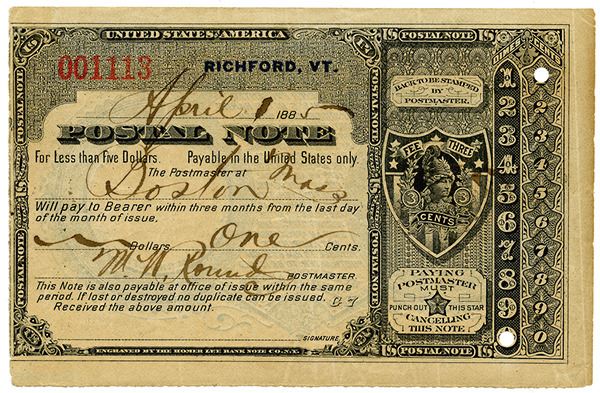 UNITED STATES AMERICA
POSTAL NOTE
001113
RICHFORD, VT.
April 1 1885
POSTAL NOTE
For Less than Five Dollars. Payable in the United States only.
The Postmaster at
Boston Mass
Will pay to Bearer within three months from the last day
of the month of issue.
Dollars One Cents.
POSTMASTER
This Note is also payable at office of issue within the same
period. If lost or destroyed no duplicate can be issued.
Received the above amount.
SIGNATURE
ENGRAVED BY THE HOMER LEE BANK NOTE CO. N.Y.
BACK TO BE STAMPED
BY
POSTMASTER.
FEE THREE
3 3
CENTS
PAYING
POSTMASTER
MUST
PUNCH OUT THIS STAR
CANCELLING
THIS NOTE
POSTAL NOTE
DIMES CENTS
1
2 2
3 3
4 4
5 5
6 6
7 7
8 8
9 9
0